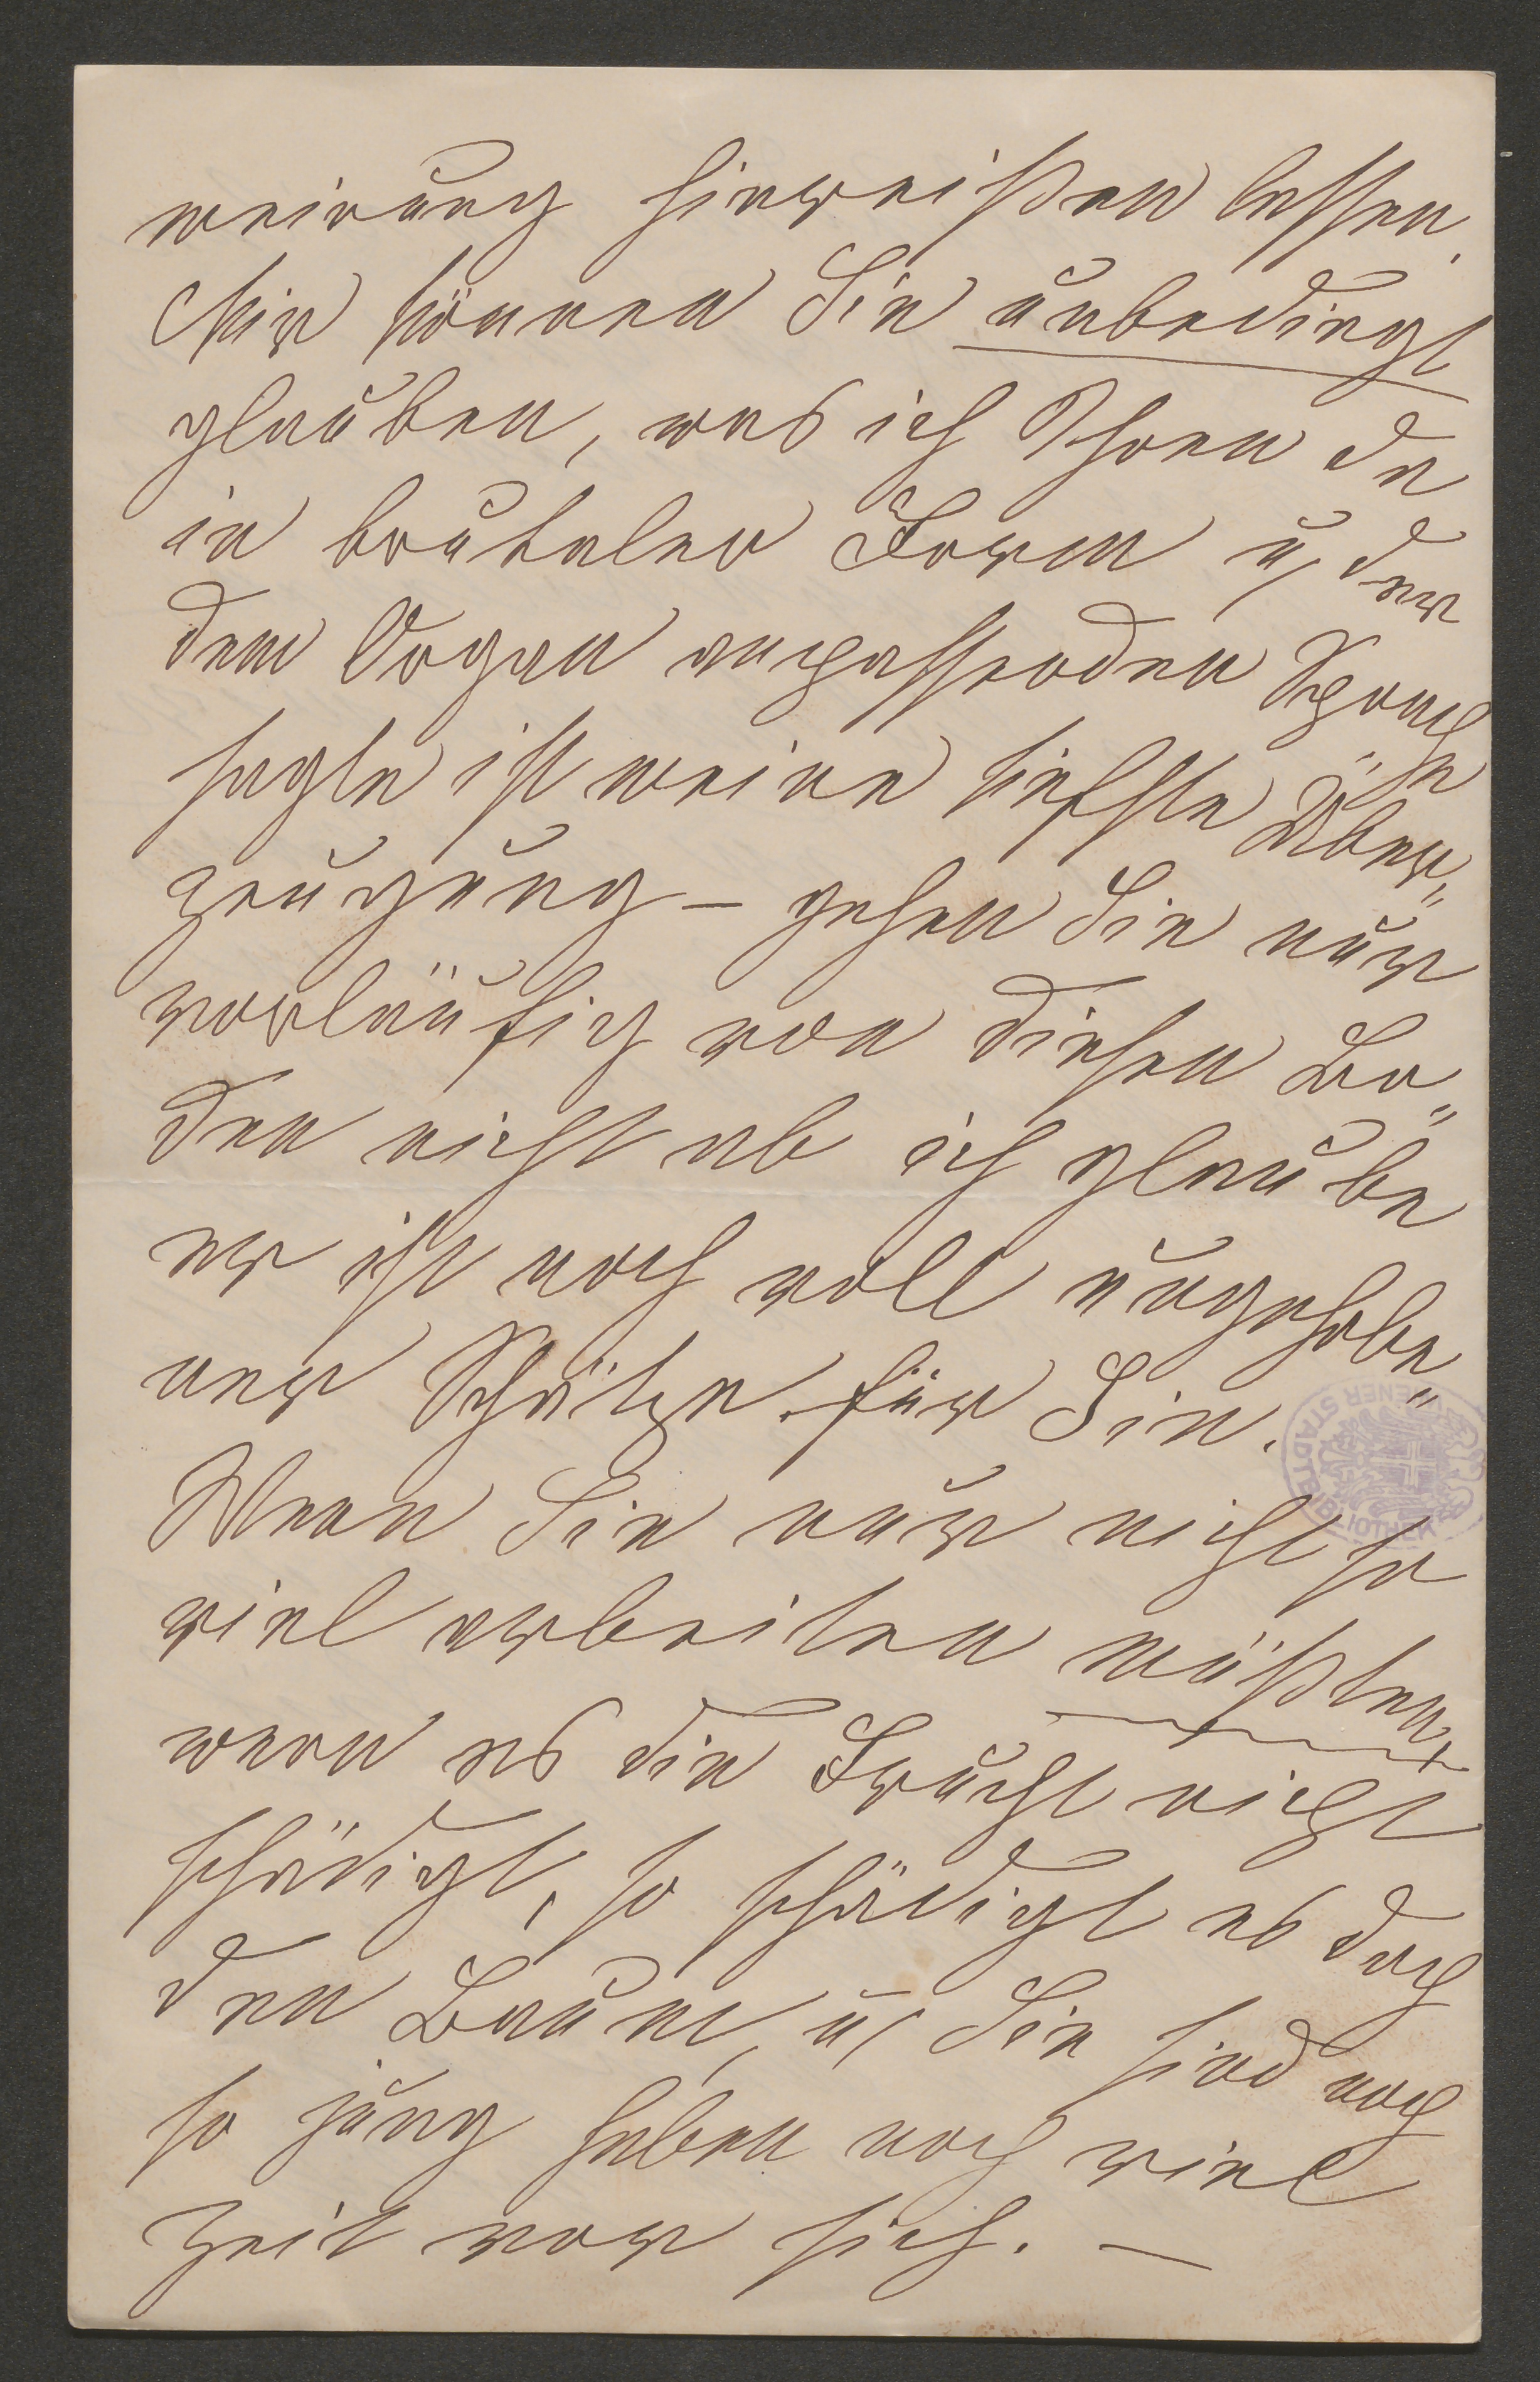 meinung hinreißen lassen.
Mir können Sie unbedingt
glauben, was ich Ihnen da
in brutaler Form u der
dem Organ anpassenden Sprache
sagte ist meine tiefste Über"
zeugung – gehen Sie nur
vorläufig von diesen Bo"
den nicht ab ich glaube
er ist noch voll ungehobe"
ner Schätze für Sie.
Wenn Sie nur nicht so
viel arbeiten müßten,
wenn es die Frucht nicht
schädigt, so schädigt es doch
den Baum, u Sie sind noch
so jung haben noch viel
Zeit vor sich. –
WIENER STADTBIBLIOTHEK